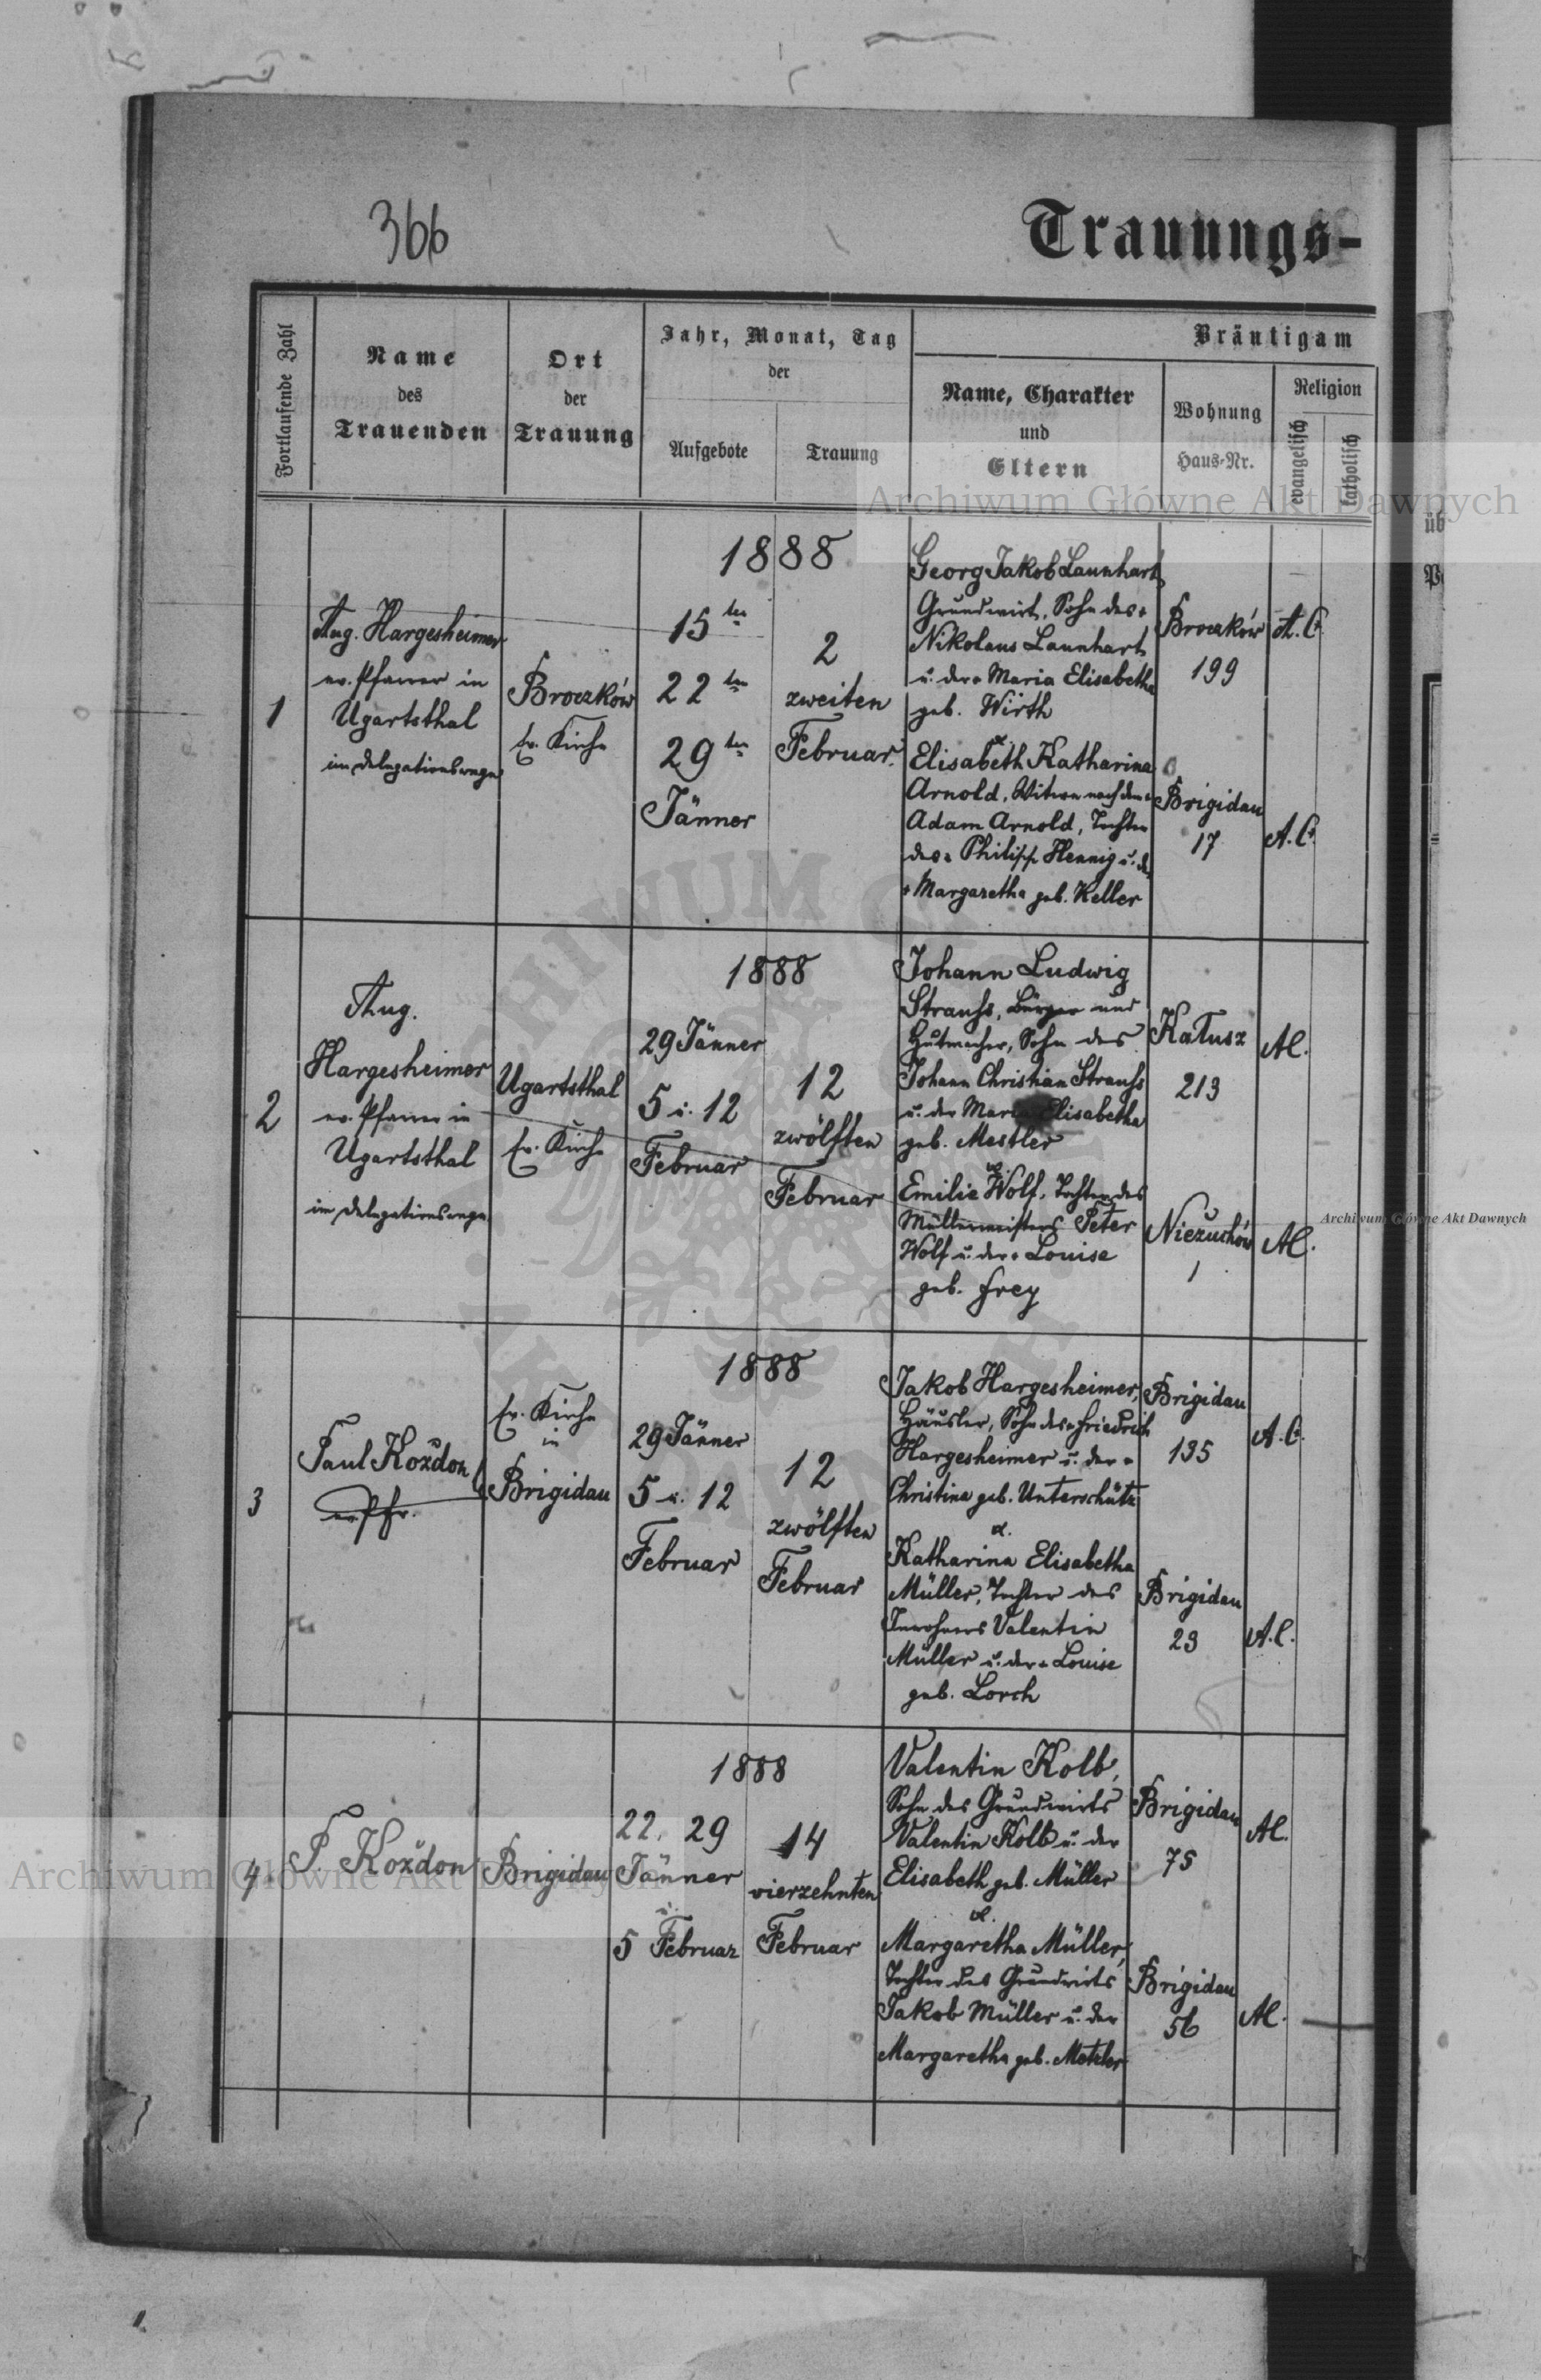 366
Trauungs-
Fortlaufende Zahl
Name
des
Trauenden
Ort
der
Trauung
Jahr, Monat, Tag
der
Aufgebote
Trauung
Bräutigam
Name, Charakter
und
Eltern
Wohnung
Haus-Nr.
Religion
evangelisch
katholisch
1
Aug. Hargesheimer
ev. Pfarrer in
Ugartsthal
im Delegationswege
Broczków
Ev. Kirche
1888
15ten
22ten
29ten
Jänner
2
zweiten
Februar
Georg Jakob Launhart,
Grundwirt, Sohn des +
Nikolaus Launhart
u. der + Maria Elisabetha
geb. Wirth
&
Elisabeth Katharina
Arnold, Witwe nach dem +
Adam Arnold, Tochter
des + Philipp Hennig u. d.
+ Margaretha geb. Keller
Broczków
199
A. C.
Brigidau
17
A. C.
2
Aug.
Hargesheimer
ev. Pfarrer in
Ugartsthal
im Delegationswege
Ugartsthal
Ev. Kirche
1888
29 Jänner
5 u. 12
Februar
12
zwölften
Februar
Johann Ludwig
Strauhs, Bürger und
Hutmacher, Sohn des
Johann Christian Strauhs
u. der Maria Elisabetha
geb. Mestler
&
Emilie Wolf, Tochter des
Müllermeisters Peter
Wolf u. der + Louise
geb. Frey
Kałusz
213
AC.
Niezuchów
1
AC.
3
Paul Kozdon
ev. Pfr.
Ev. Kirche
in
Brigidau
1888
29 Jänner
5 u. 12
Februar
12
zwölften
Februar
Jakob Hargesheimer,
Häusler, Sohn des + Friedrich
Hargesheimer u. der +
Christina geb. Unterschütz
&.
Katharina Elisabetha
Müller, Tochter des
Inwohners Valentin
Müller u. der + Louise
geb. Lorch
Brigidau
135
A. C.
Brigidau
23
A. C.
4
P. Kozdon
Brigidau
1888
22, 29
Jänner
u.
5 Februar
14
vierzehnten
Februar
Valentin Kolb,
Sohn des Grundwirts
Valentin Kolb u. der
Elisabeth geb. Müller
&.
Margaretha Müller,
Tochter des Grundwirts
Jakob Müller u. der
Margaretha geb. Metzler
Brigidau
75
AC.
Brigidau
56
AC.
Archiwum Główne Akt Dawnych
Archiwum Główne Akt Dawnych
Archiwum Główne Akt Dawnych